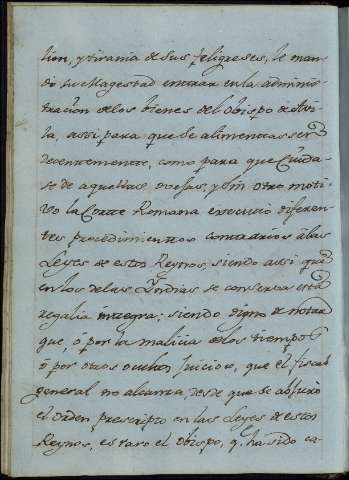 cion, y tirania de sus feligreses, le man-
dó su Magestad entrar en la adminis-
tracion de los bienes del obispo de Avi-
la, assi para que se alimentasse
decentemente, como para que Cuida-
se de aquellas ovejas, y sin otro moti-
vo la Corte Romana executó diferen-
tes procedimientos contrarios á las
Leyes de estos Reynos, siendo assi que
en los de las Yndias se conserva esta
regalia integra; siendo digno de notar
que, ó por la malicia de los tiempos
ó por otros ocultos juicios, que el fiscal
general no alcanza, desde que se alteró
el orden prescripto en las Leyes de estos
Reynos, es raro el obispo, q. ha sido ca-